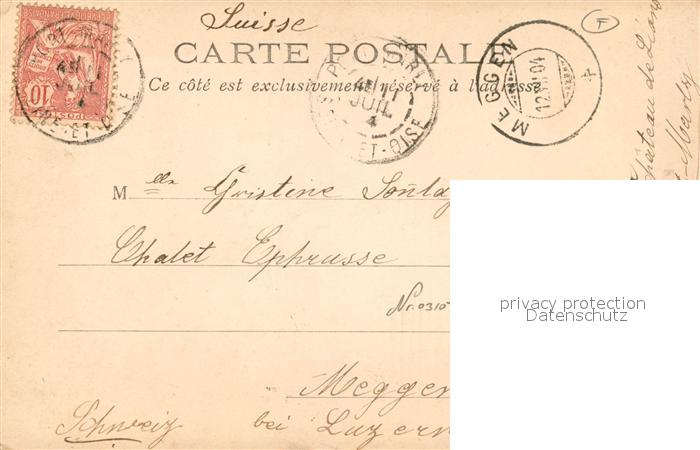 Suisse
CARTE POSTALE
Ce côté est exclusivement réservé à l'adresse
MEGGEN
12.VII.04
JUIL
ET-OISE
JUIL
4
ET-OISE
10
Château de
Marly
Mlle
Chalet Ephrusse
Nr.0310
Meggen
Schweiz bei Luzern
privacy protection
Datenschutz
F